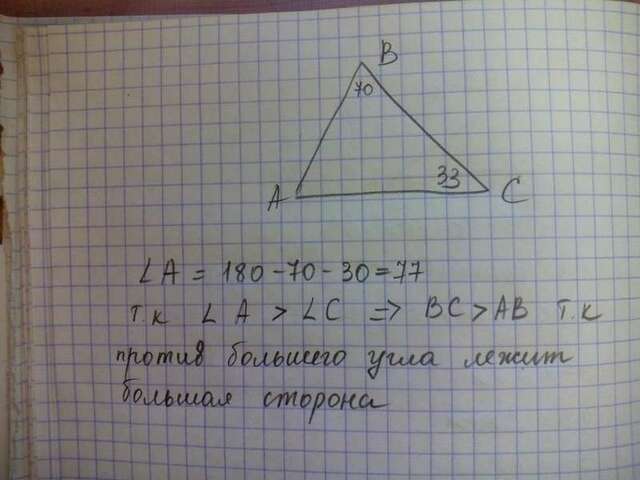 B
70
A
33
C
∠A = 180 - 70 - 30 = 77
т.к ∠A > ∠C => BC > AB т.к
против большего угла лежит
большая сторона